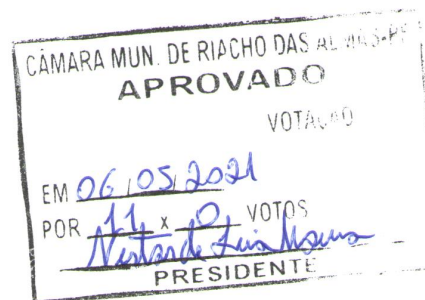 CÂMARA MUN. DE RIACHO DAS ALMAS-PE
APROVADO
VOTAÇÃO
EM 06/05/2021
POR 11 x 0 VOTOS
PRESIDENTE